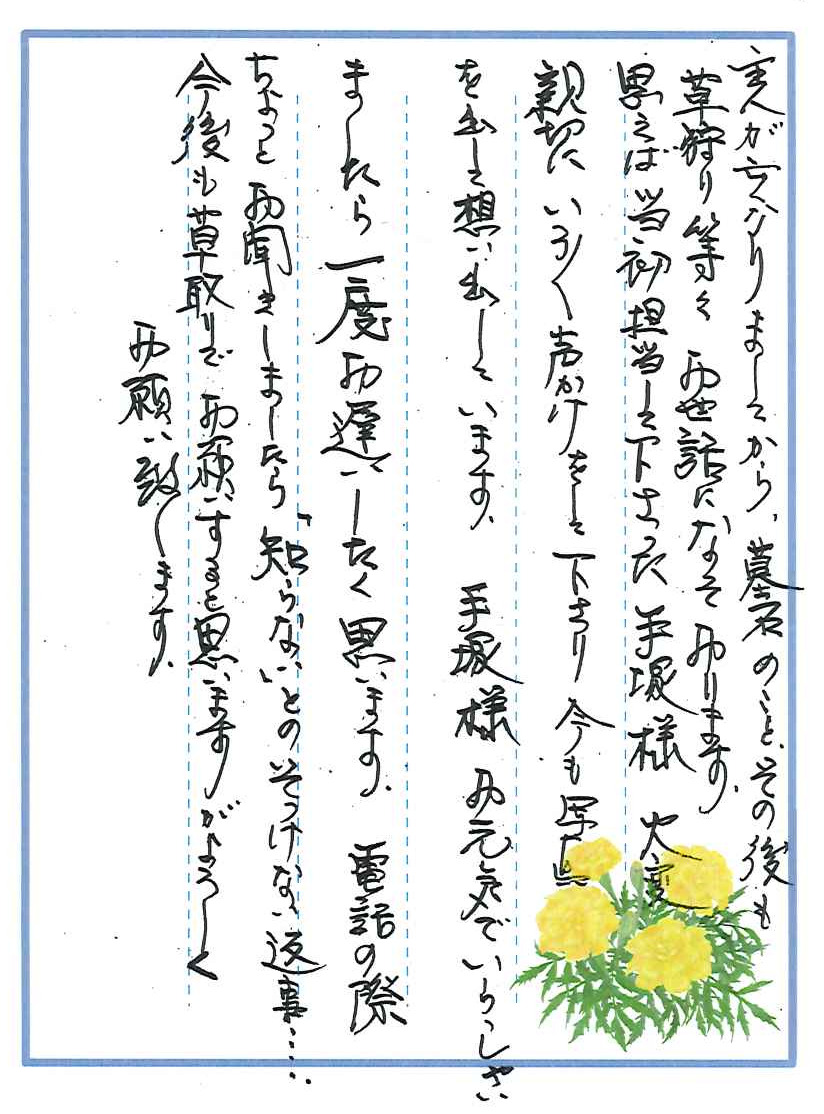 主人が亡くなりましてから、墓石のこと、その後も
草狩り等々お世話になっております。
思えば当初担当して下さった手塚様 大変
親切にいろいろ声かけをして下さり今も写真
を出して想い出しています。手塚様お元気でいらっしゃい
ましたら一度お逢いしたく思います。電話の際
ちょっとお聞きしましたら「知らない」とのそっけない返事‥‥
今後も草取りでお願いすると思いますがよろしく
お願い致します。